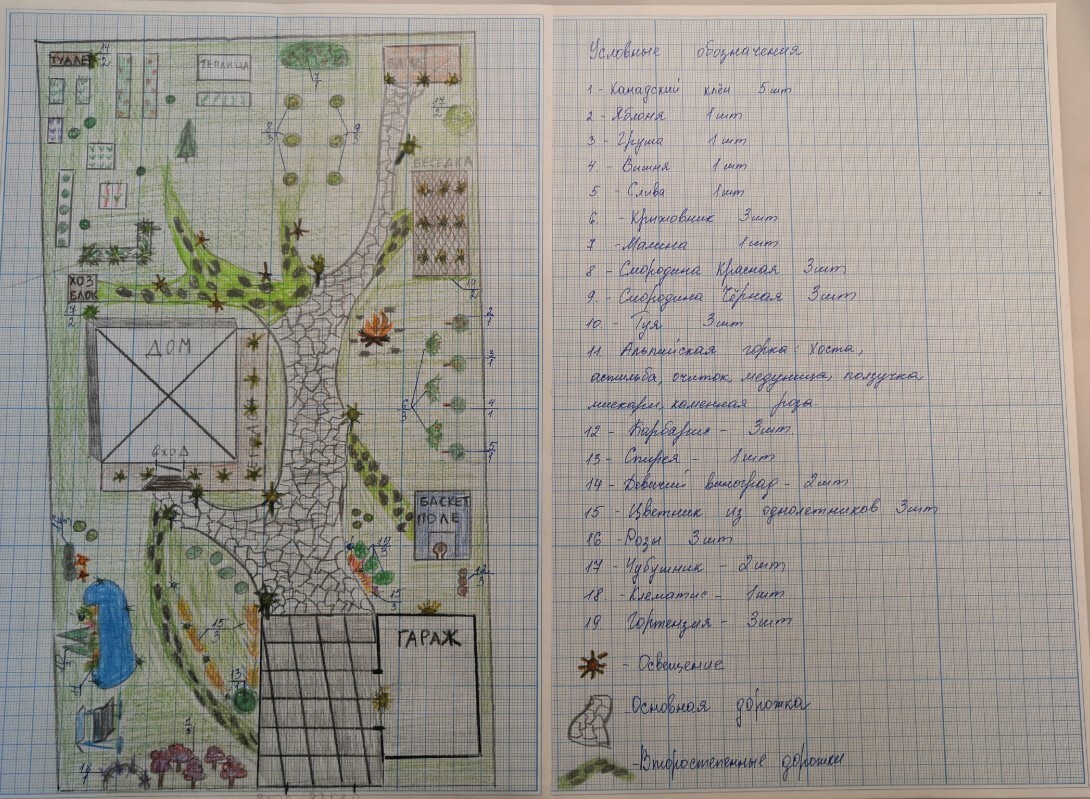 ТУАЛЕ
14
2
ТЕПЛИЦА
7
БАНЯ
8
3
9
3
17
2
БЕСЕДКА
ХОЗ
БЛОК
14
2
2
1
3
1
6
3
4
1
5
1
ДОМ
ВХОД
БАСКЕТ
ПОЛЕ
19
3
12
3
15
3
15
3
13
1
1
5
11
ГАРАЖ
Условные обозначения
1 - Канадский клён 5 шт
2 - Яблоня 1 шт
3 - Груша 1 шт
4 - Вишня 1 шт
5 - Слива 1 шт
6 - Крыжовник 3 шт
7 - Малина 1 шт
8 - Смородина Красная 3 шт
9. - Смородина Чёрная 3 шт
10. - Туя 3 шт
11. Альпийская горка: Хоста,
астильба, очиток, медуница, ползучка
мискари, каменная роза.
12 - Барбарис - 3 шт.
13 - Спирея - 1 шт
14 - Девичий виноград - 2 шт
15 - Цветник из однолетников 3 шт
16 - Розы 3 шт
17 - Чубушник - 2 шт
18. - Клематис - 1 шт
19. Гортензия - 3 шт
- Освещение
- Основная дорожка
- Второстепенные дорожки